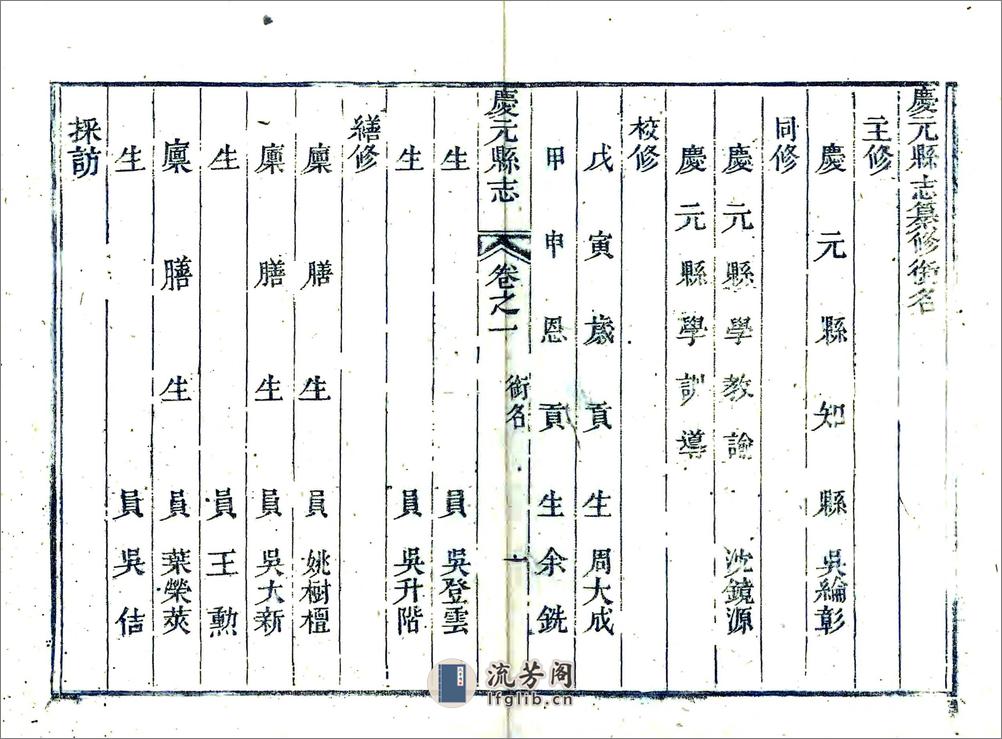 慶元縣志纂修銜名
主修
慶元縣知縣吳綸彰
同修
慶元縣學教諭沈鏡源
慶元縣學訓導
校修
戊寅歲貢生周大成
甲申恩貢生余銑
慶元縣志 卷之一 銜名 一
生員吳登雲
生員吳升階
繕修
廩膳生員姚樹檀
廩膳生員吳大新
生員王勲
廩膳生員葉榮莢
生員吳佶
採訪
流芳阁
lfglib.cn